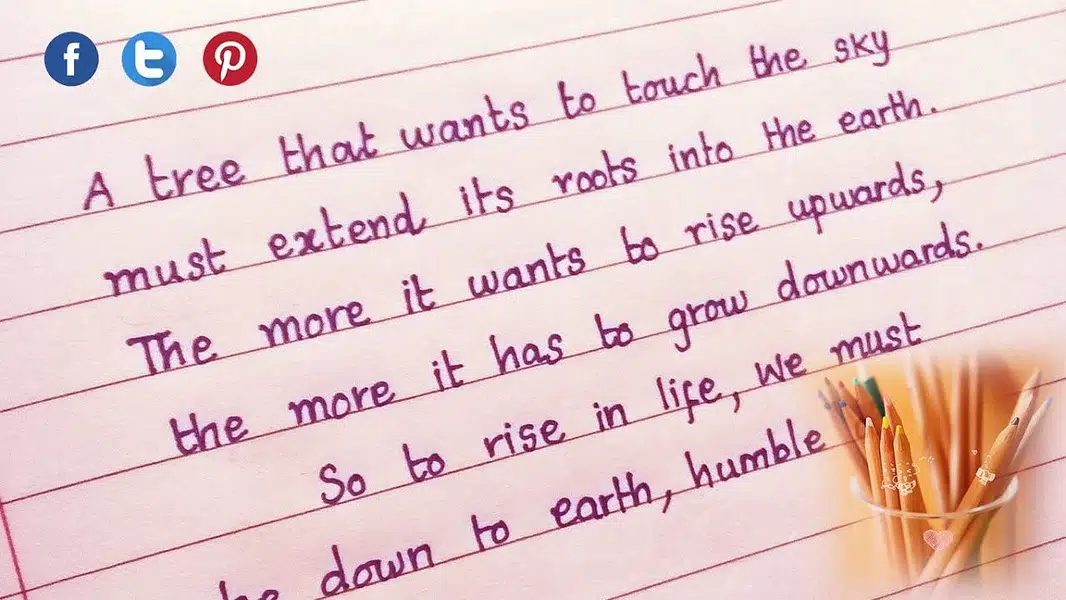 A tree that wants to touch the sky
must extend its roots into the earth.
The more it wants to rise upwards,
the more it has to grow downwards.
So to rise in life, we must
be down to earth, humble